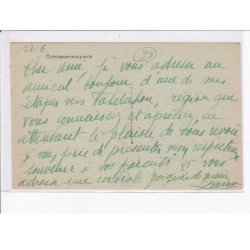 22 €
P3
CORRESPONDANCE
Cher ami je vous adresse un
amical bonjour d'une de mes
étapes vers région que
vous connaissez et appréciez, en
attendant le plaisir de vous revoir
je vous prie de présenter mon respectueux
souvenir à vos parents et vous
adresse une cordiale poignée de main